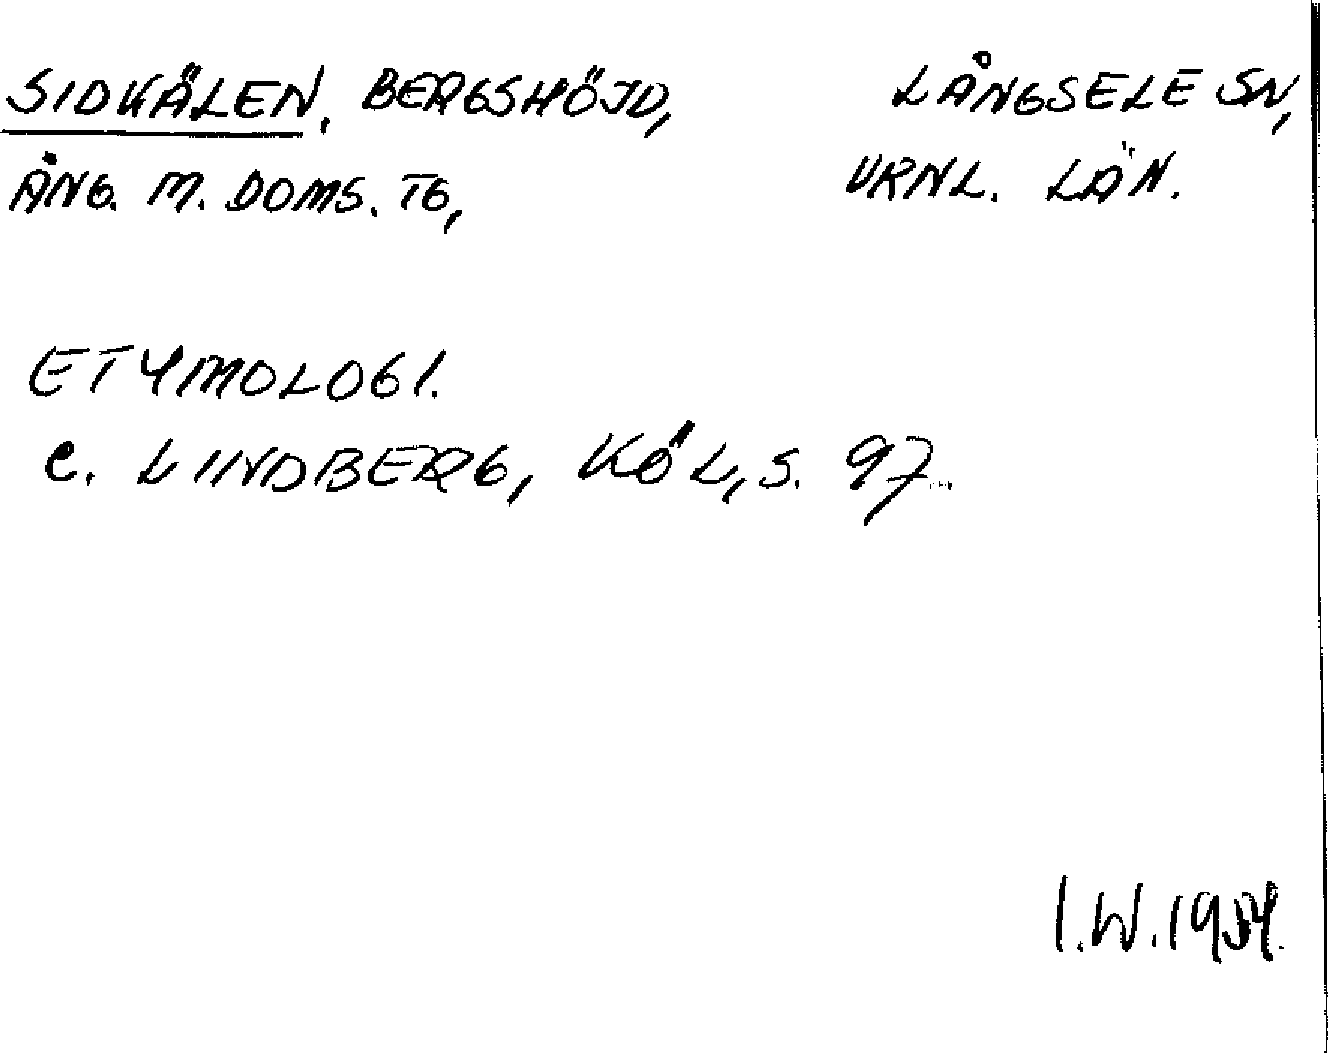 SIDKÄLEN, BERGSHÖJD, LÅNGSELE SN,
ÅNG. M. DOMS. TG, VRNL. LÄN.
ETYMOLOGI.
C. LINDBERG, KÖL, S. 97.
I.W. 1954.